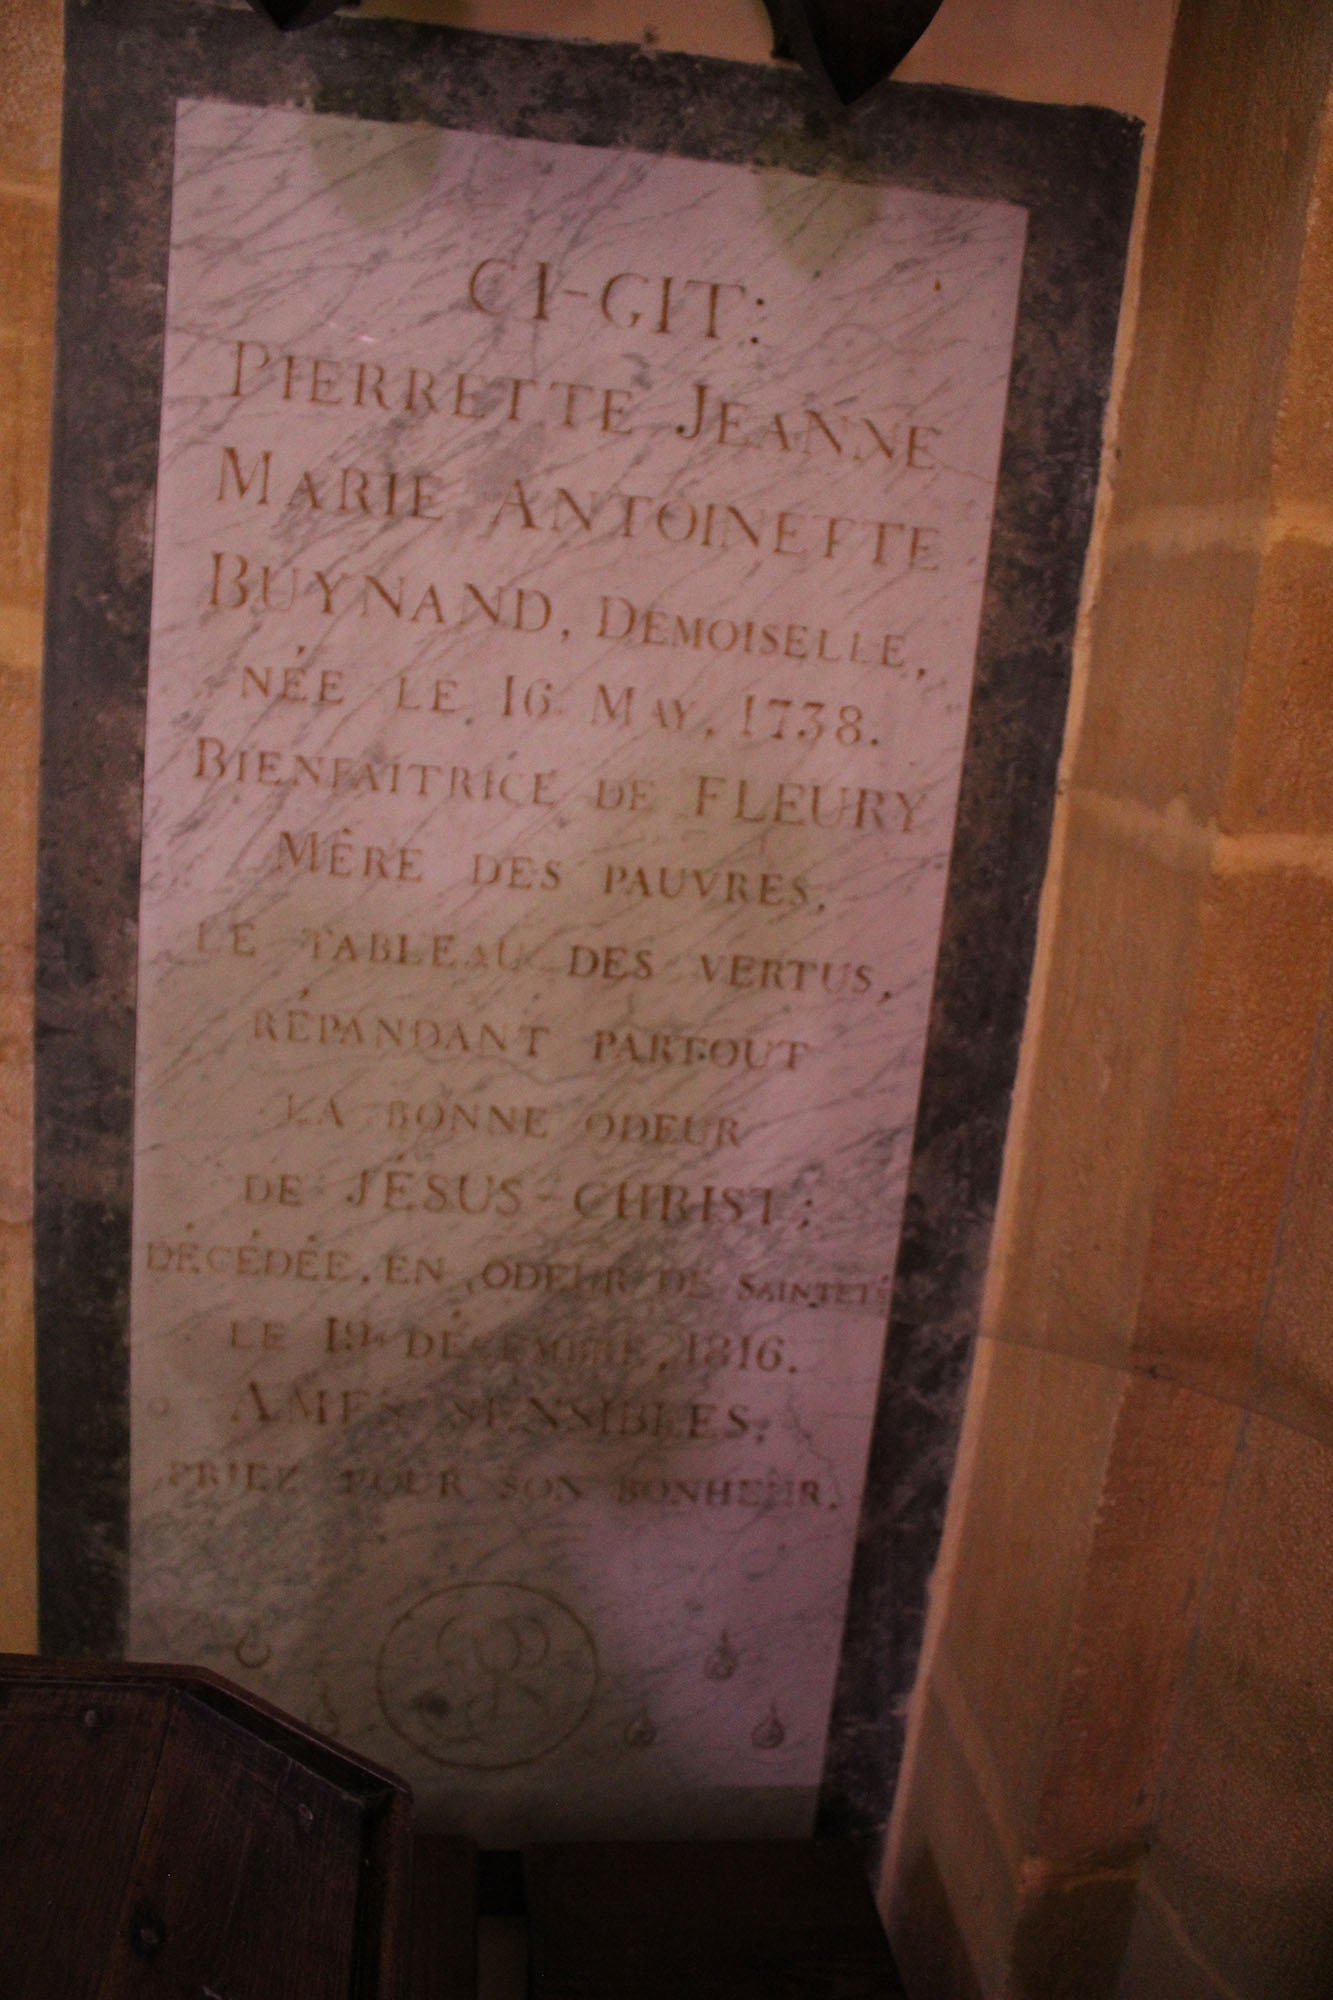 CI-GIT:
PIERRETTE JEANNE
MARIE ANTOINETTE
BUYNAND, DEMOISELLE,
NÉE LE 16 MAY, 1738.
BIENFAITRICE DE FLEURY
MÈRE DES PAUVRES,
LE TABLEAU DES VERTUS,
RÉPANDANT PARTOUT
LA BONNE ODEUR
DE JÉSUS-CHRIST;
DÉCÉDÉE, EN ODEUR DE SAINTETÉ
LE 19 DÉCEMBRE, 1816.
AMES SENSIBLES,
PRIEZ POUR SON BONHEUR.